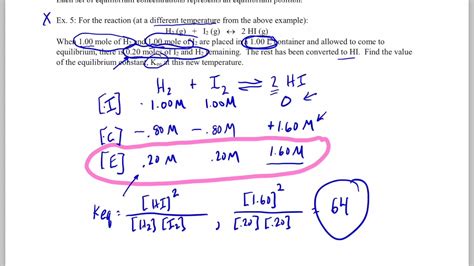 X Ex. 5: For the reaction (at a different temperature from the above example):
H₂ (g) + I₂ (g) ↔ 2 HI (g)
When 1.00 mole of H₂ and 1.00 mole of I₂ are placed in a 1.00 L container and allowed to come to
equilibrium, there is 0.20 moles of I₂ and H₂ remaining. The rest has been converted to HI. Find the value
of the equilibrium constant, Keq, at this new temperature.
H₂ + I₂ ⇌ 2 HI
[I] 1.00M 1.00M 0
[C] -.80M -.80M +1.60M
[E] .20M .20M 1.60M
Keq = [HI]² / [H₂][I₂] , [1.60]² / [.20][.20] = 64